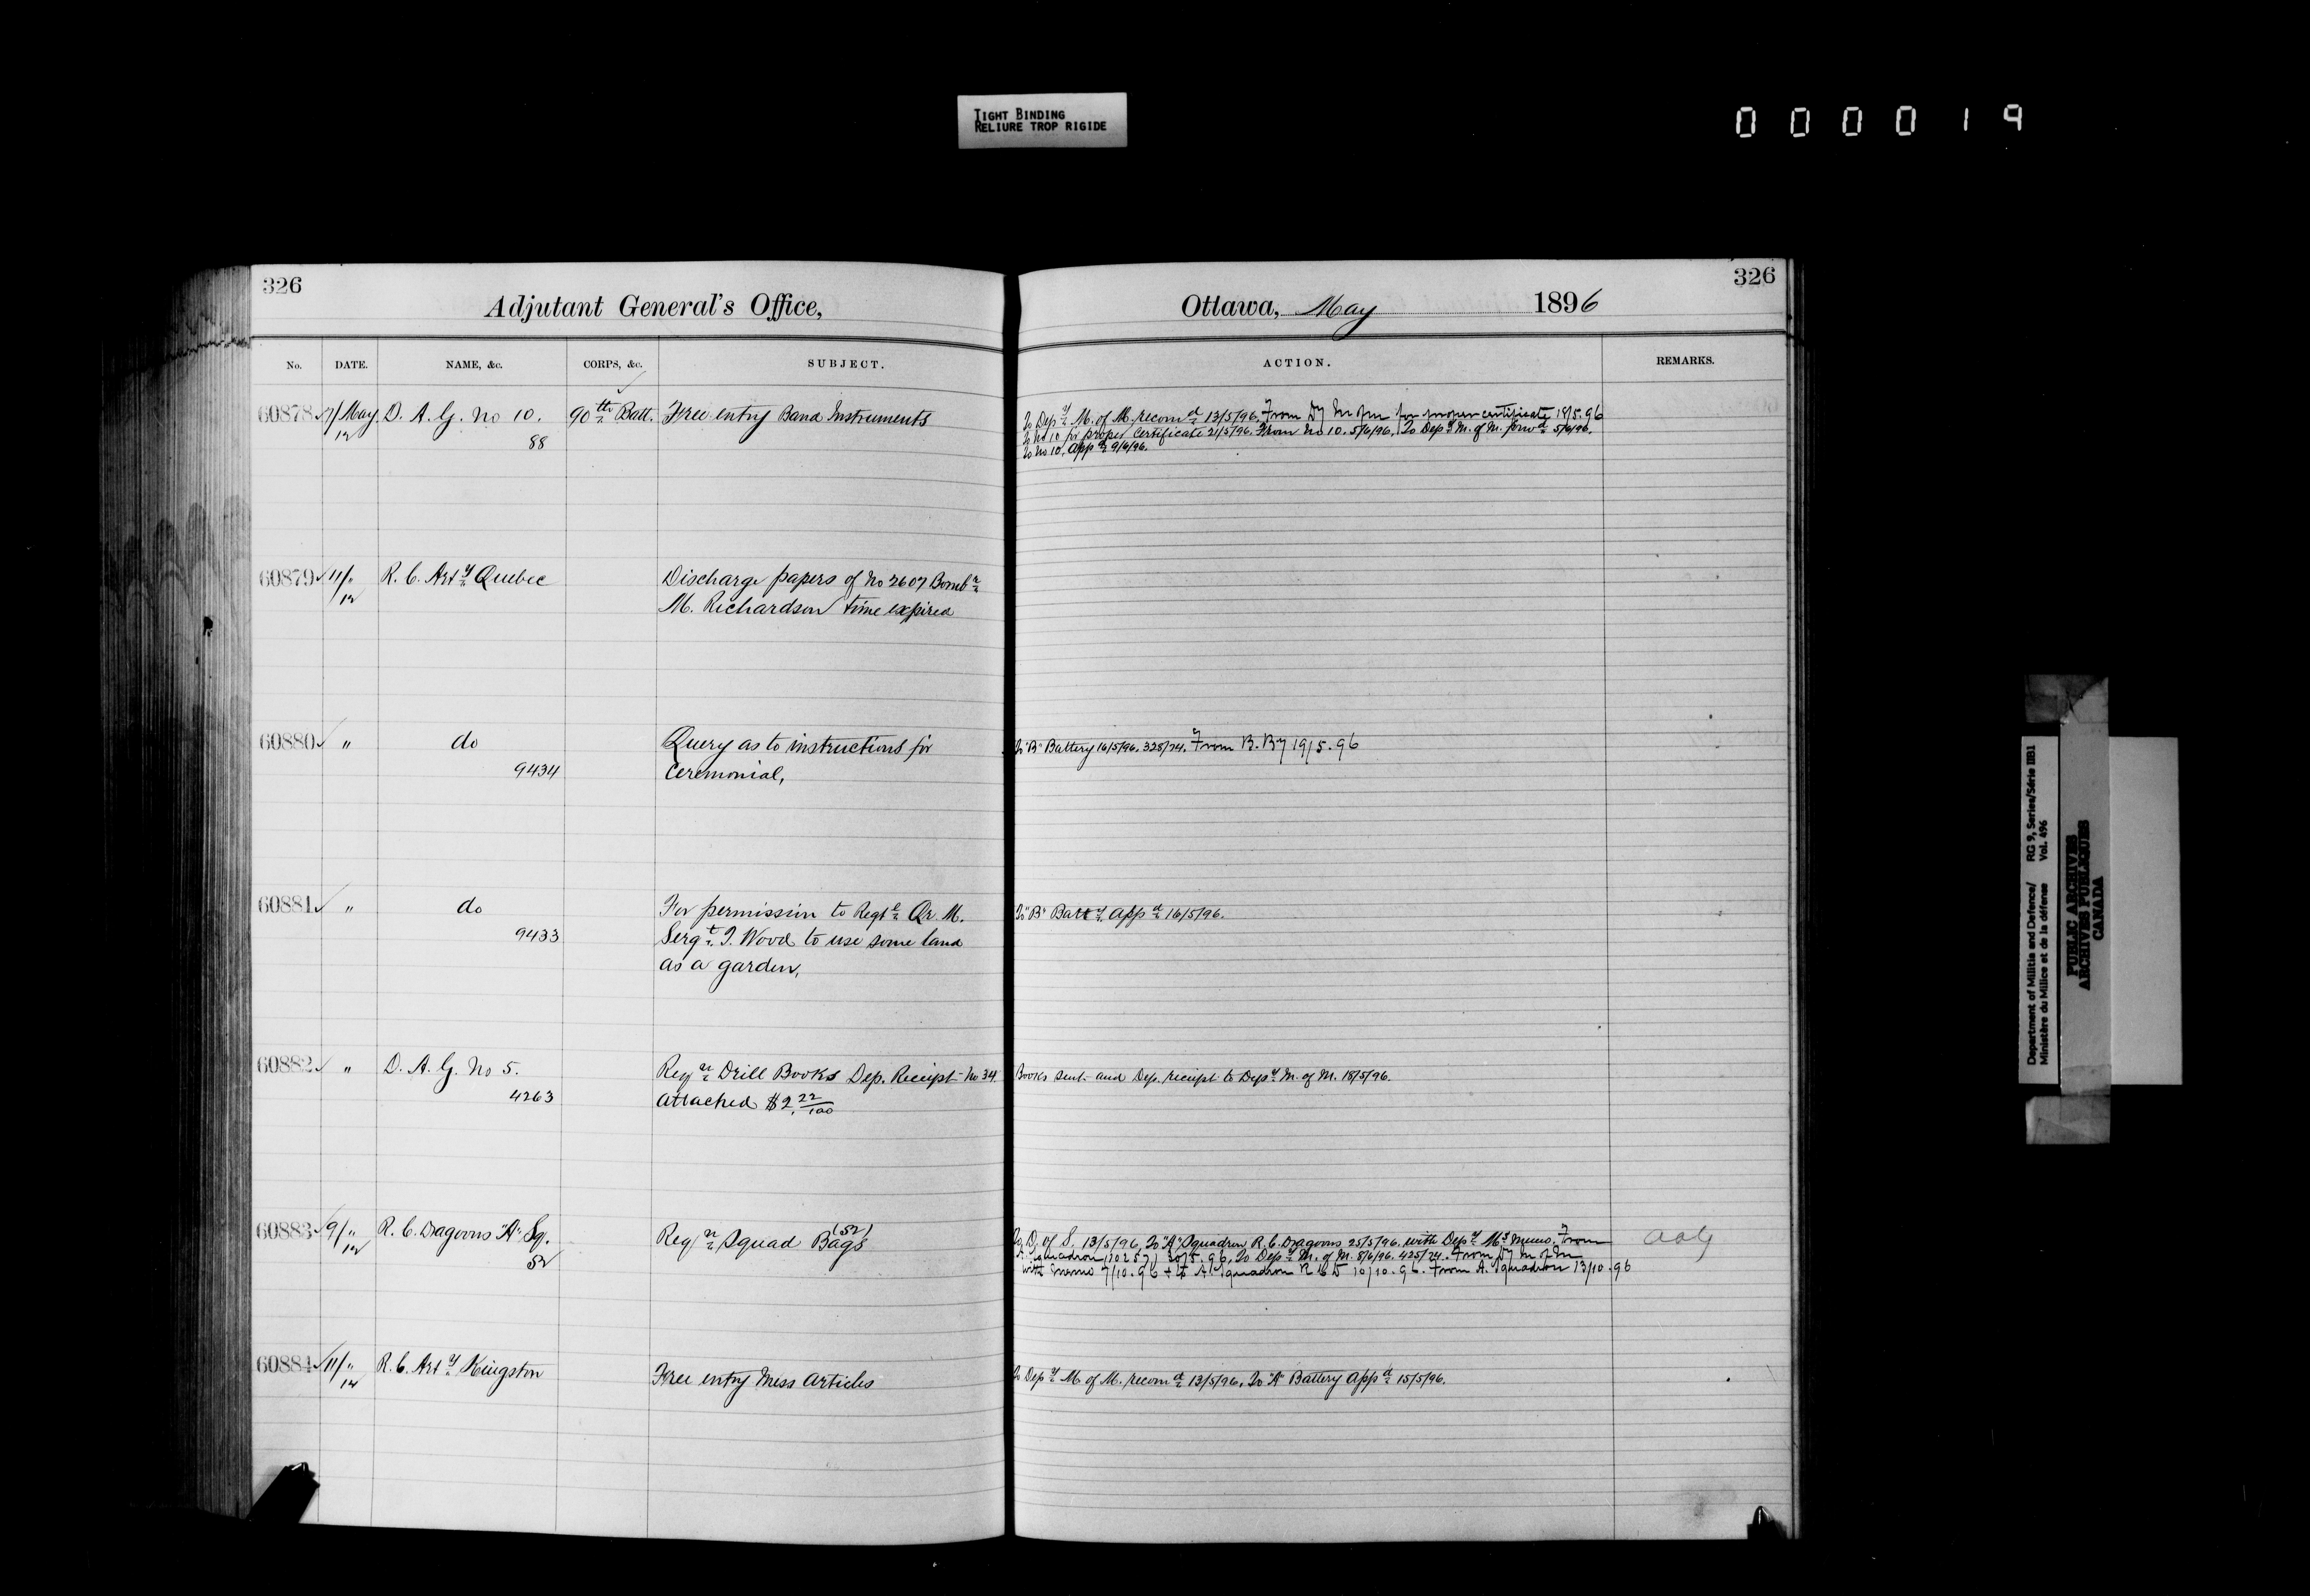 TIGHT BINDING
RELIURE TROP RIGIDE
000019
326
Adjutant General's Office,
Ottawa, May 1896
326
No. DATE. NAME, &c. CORPS, &c. SUBJECT. ACTION. REMARKS.
60878 7/May D. A. G. No 10. 90th Batt. Free entry Band Instruments
12
88
To Depy M. of M. recomd 13/5/96. From Dy M of M for proper certificate 18/5.96
To No 10 for proper Certificate 21/5/96. From No 10. 5/6/96. To Depy M. of M. forwd 5/6/96.
To No 10, appd 9/6/96.
60879 11/" R. C. Arty Quebec Discharge papers of No 2607 Bombr
12 M. Richardson time expired
60880 " do Query as to instructions for To "B" Battery 16/5/96. 325/24. From B. By 19/5.96
9434 Ceremonial,
60881 " do For permission to Regtl Qr. M. To "B" Batty. appd 16/5/96.
9433 Sergt. J. Wood to use some land
as a garden,
60882 " D. A. G. No 5. Reqn Drill Books Dep. Receipt No 34 Books sent and Dep. receipt to Depy. M. of M. 18/5/96.
4263 attached $2. 22/100
60883 9/" R. C. Dragoons "A" Sq. Reqn Squad Bags (52)
12
52
To D. of S. 13/5/96, To "A" Squadron R. C. Dragoons 25/5/96. with Depy Ms memo. From
A Squadron (10257) 30/5.96, To Depy M. of M. 8/6/96. 425/24. From Dy M of M
with memo 7/10.96 + to A Squadron R C D 10/10.96. From A. Squadron 13/10.96
60884 11/" R. C. Arty Kingston Free entry Mess Articles To Depy M of M. recomd 13/5/96. To "A" Battery appd 15/5/96.
12
Department of Militia and Defence/ RG 9, Series/Série IIB1
Ministère du Milice et de la défense Vol. 496
PUBLIC ARCHIVES
ARCHIVES PUBLIQUES
CANADA